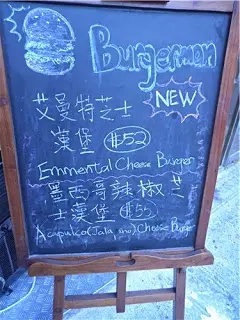 Burgerman
NEW
艾曼特芝士
漢堡 $52
Emmental Cheese Burger
墨西哥辣椒芝
士漢堡 $55
Acapulco(Jala no) Cheese Burger